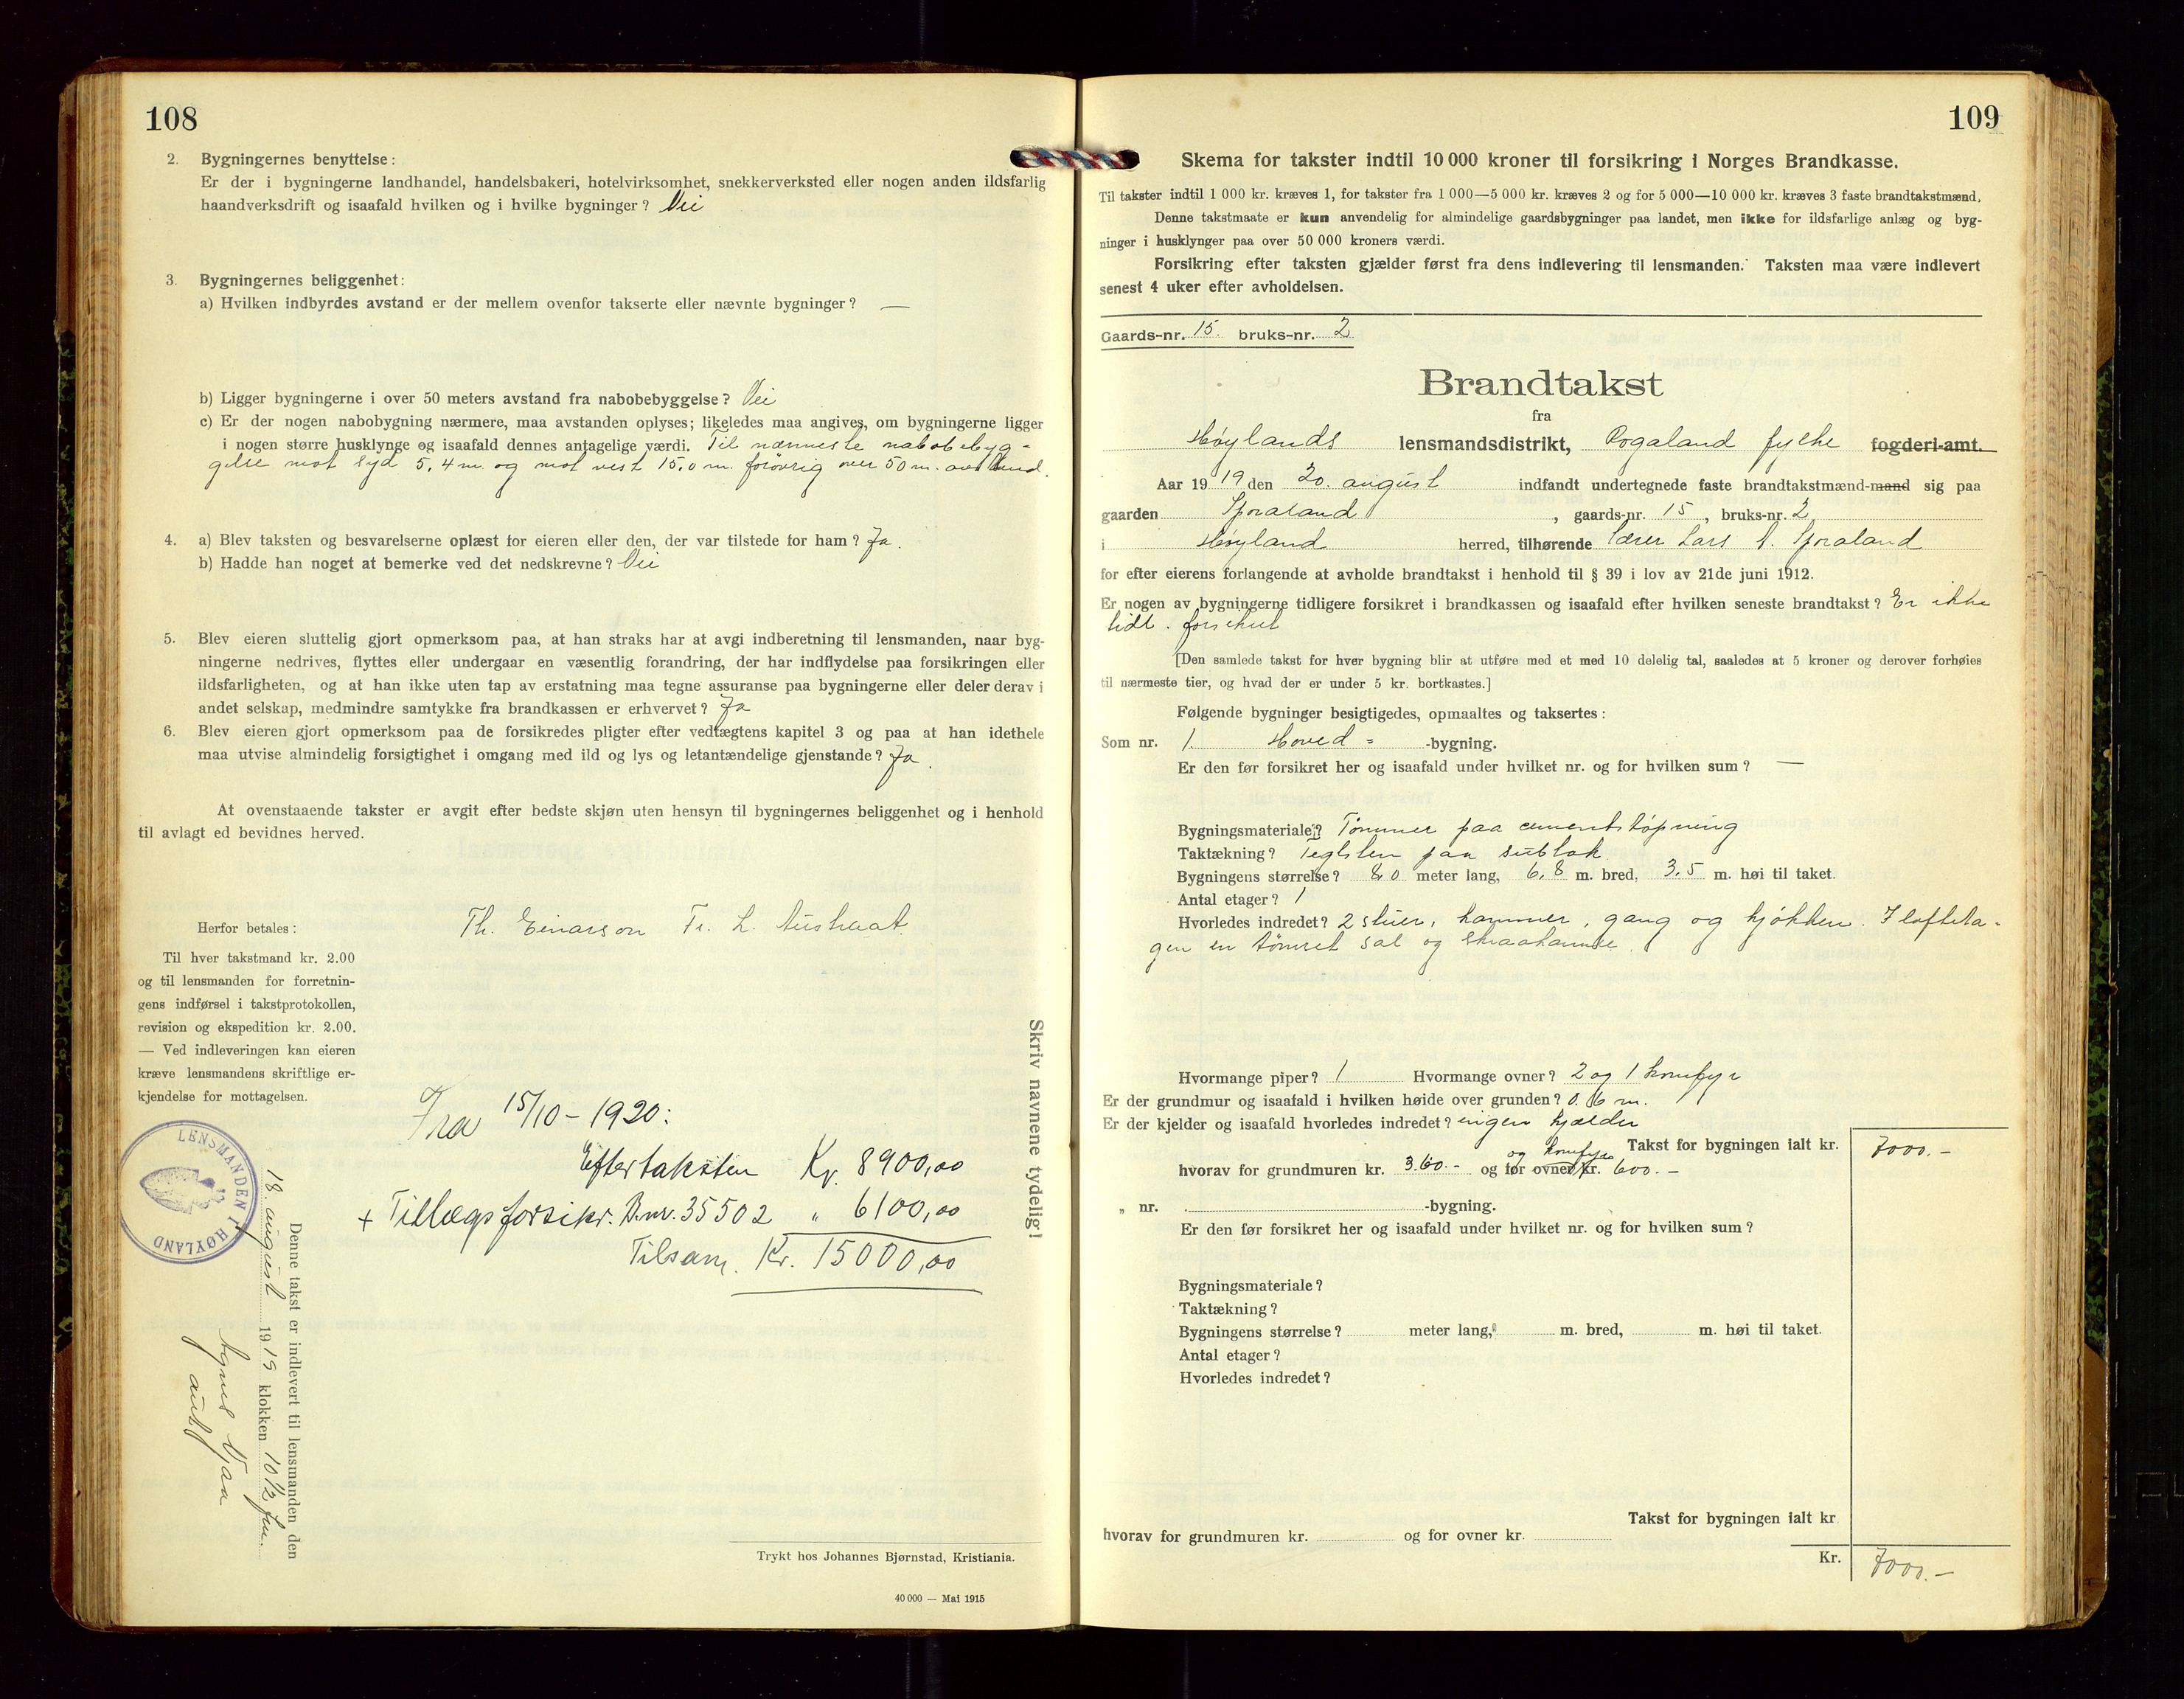 108
2. Bygningernes benyttelse:
Er der i bygningerne landhandel, handelsbakeri, hotelvirksomhet, snekkerverksted eller nogen anden ildsfarlig
haandverksdrift og isaafald hvilken og i hvilke bygninger? Nei
3. Bygningernes beliggenhet:
a) Hvilken indbyrdes avstand er der mellem ovenfor takserte eller nævnte bygninger? —
b) Ligger bygningerne i over 50 meters avstand fra nabobebyggelse? Nei
c) Er der nogen nabobygning nærmere, maa avstanden oplyses; likeledes maa angives, om bygningerne ligger
i nogen større husklynge og isaafald dennes antagelige værdi. Til nærmeste nabobebyg-
gelse mot syd 5,4 m. og mot vest 15,0 m. forøvrig over 50 m. avstand.
4. a) Blev taksten og besvarelserne oplæst for eieren eller den, der var tilstede for ham? Ja.
b) Hadde han noget at bemerke ved det nedskrevne? Nei
5. Blev eieren sluttelig gjort opmerksom paa, at han straks har at avgi indberetning til lensmanden, naar byg-
ningerne nedrives, flyttes eller undergaar en væsentlig forandring, der har indflydelse paa forsikringen eller
ildsfarligheten, og at han ikke uten tap av erstatning maa tegne assuranse paa bygningerne eller deler derav i
andet selskap, medmindre samtykke fra brandkassen er erhvervet? Ja
6. Blev eieren gjort opmerksom paa de forsikredes pligter efter vedtægtens kapitel 3 og paa at han idethele
maa utvise almindelig forsigtighet i omgang med ild og lys og letantændelige gjenstande? Ja.
At ovenstaaende takster er avgit efter bedste skjøn uten hensyn til bygningernes beliggenhet og i henhold
til avlagt ed bevidnes herved.
Herfor betales:
Th. Einarson Fr. L. Austraat
Til hver takstmand kr. 2.00
og til lensmanden for forretnin-
gens indførsel i takstprotokollen,
revision og ekspedition kr. 2.00.
— Ved indleveringen kan eieren
kræve lensmandens skriftlige er-
kjendelse for mottagelsen.
Skriv navnene tydelig!
Fra 15/10 - 1920:
Eftertaksten Kr. 8900,00
+ Tillægsforsikr. B.nr. 35502 " 6100,00
Tilsam. Kr. 15000,00
LENSMANDEN I HØYLAND
Denne takst er indlevert til lensmanden den
18. august 1919 klokken 10 1/2 fm.
Trykt hos Johannes Bjørnstad, Kristiania.
40 000 — Mai 1915
109
Skema for takster indtil 10 000 kroner til forsikring i Norges Brandkasse.
Til takster indtil 1 000 kr. kræves 1, for takster fra 1 000—5 000 kr. kræves 2 og for 5 000—10 000 kr. kræves 3 faste brandtakstmænd.
Denne takstmaate er kun anvendelig for almindelige gaardsbygninger paa landet, men ikke for ildsfarlige anlæg og byg-
ninger i husklynger paa over 50 000 kroners værdi.
Forsikring efter taksten gjælder først fra dens indlevering til lensmanden. Taksten maa være indlevert
senest 4 uker efter avholdelsen.
Gaards-nr. 15. bruks-nr. 2
Brandtakst
fra
Høylands lensmandsdistrikt, Rogaland fylke fogderi-amt.
Aar 1919 den 20. august indfandt undertegnede faste brandtakstmænd-mand sig paa
gaarden Skoraland, gaards-nr. 15, bruks-nr. 2
i Høyland herred, tilhørende Lars Skoraland
for efter eierens forlangende at avholde brandtakst i henhold til § 39 i lov av 21de juni 1912.
Er nogen av bygningerne tidligere forsikret i brandkassen og isaafald efter hvilken seneste brandtakst? Er ikke
tidl. forsikret
[Den samlede takst for hver bygning blir at utføre med et med 10 delelig tal, saaledes at 5 kroner og derover forhøies
til nærmeste tier, og hvad der er under 5 kr. bortkastes.]
Følgende bygninger besigtigedes, opmaaltes og taksertes:
Som nr. 1. Hoved- -bygning.
Er den før forsikret her og isaafald under hvilket nr. og for hvilken sum? —
Bygningsmateriale? Tømmer paa cementstøpning
Taktækning? Teglsten paa sutak
Bygningens størrelse? 8,0 meter lang, 6,8 m. bred, 3,5 m. høi til taket.
Antal etager? 1
Hvorledes indredet? 2 stuer, kammer, gang og kjøkken. I lofteta-
gen en tømret sal og skraakamre.
Hvormange piper? 1 Hvormange ovner? 2 og 1 komfyr
Er der grundmur og isaafald i hvilken høide over grunden? 0.6 m.
Er der kjelder og isaafald hvorledes indredet? ingen kjælder
Takst for bygningen ialt kr. 7000.-
hvorav for grundmuren kr. 360.- og for ovner og komfyr kr. 600.-
„ nr. -bygning.
Er den før forsikret her og isaafald under hvilket nr. og for hvilken sum?
Bygningsmateriale?
Taktækning?
Bygningens størrelse? meter lang, m. bred, m. høi til taket.
Antal etager?
Hvorledes indredet?
Takst for bygningen ialt kr
hvorav for grundmuren kr. og for ovner kr.
Kr. 7000.-